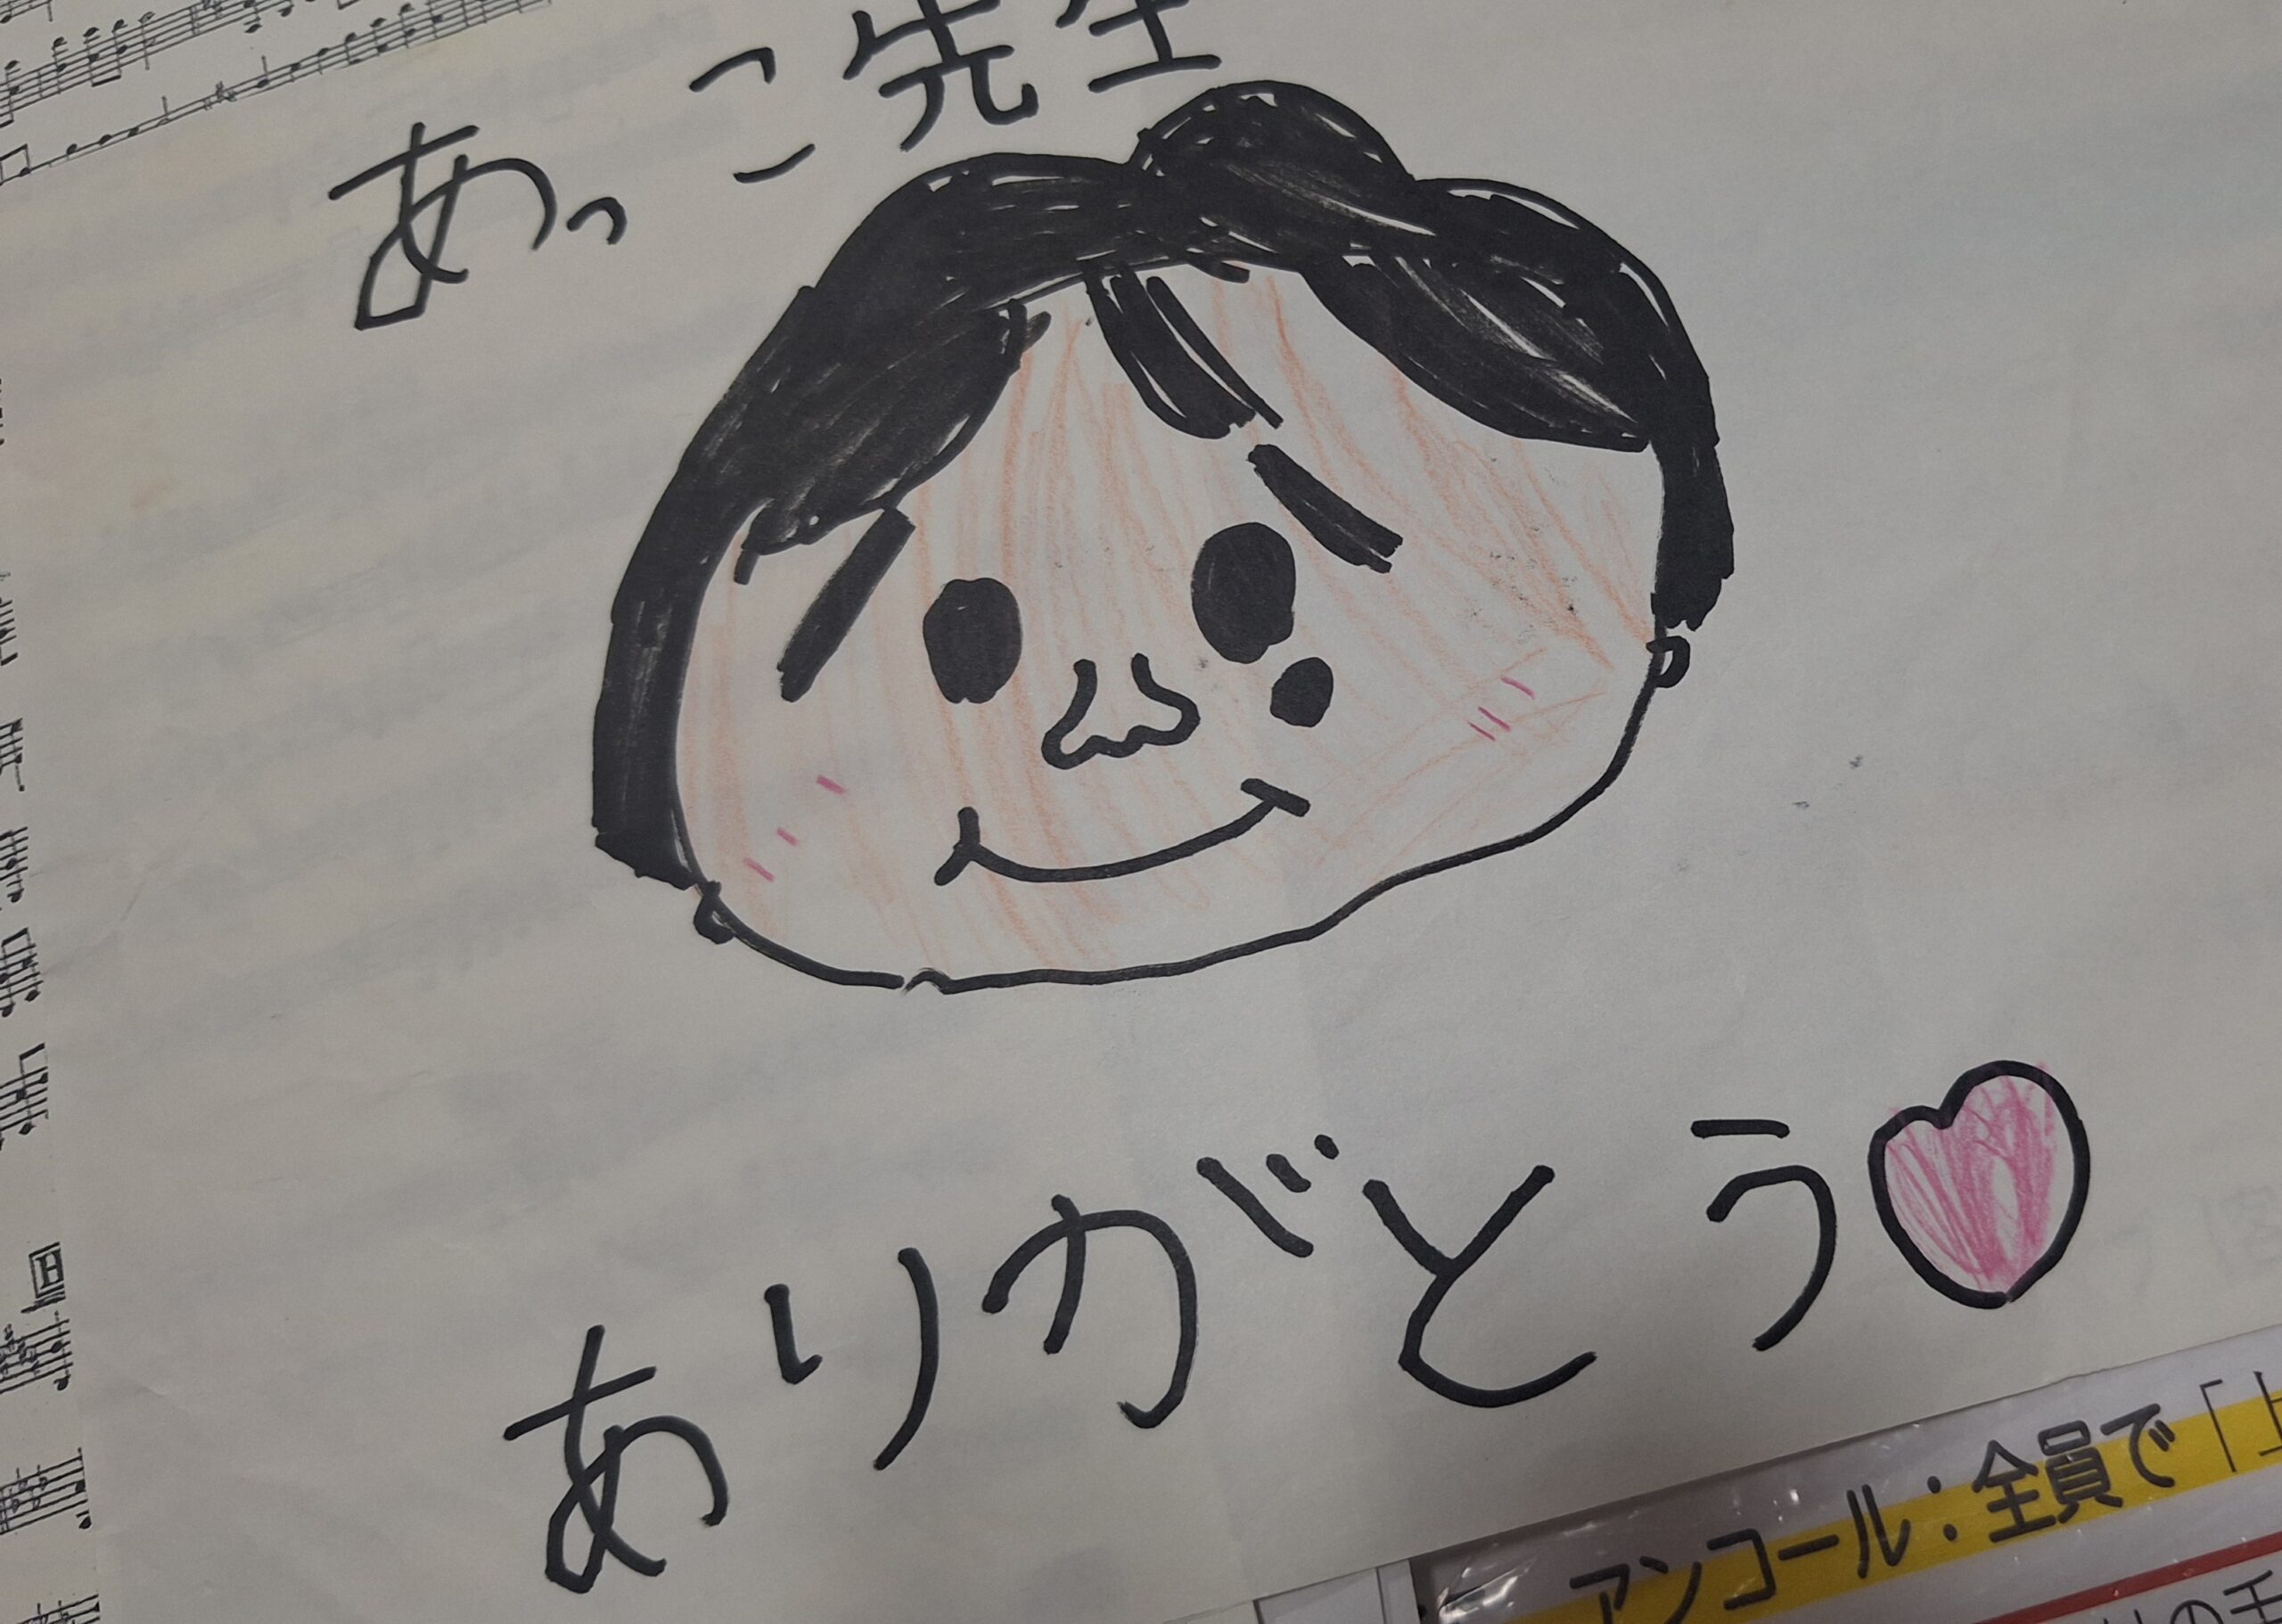 あっこ先生
ありがとう♡
アンコール:全員で「上